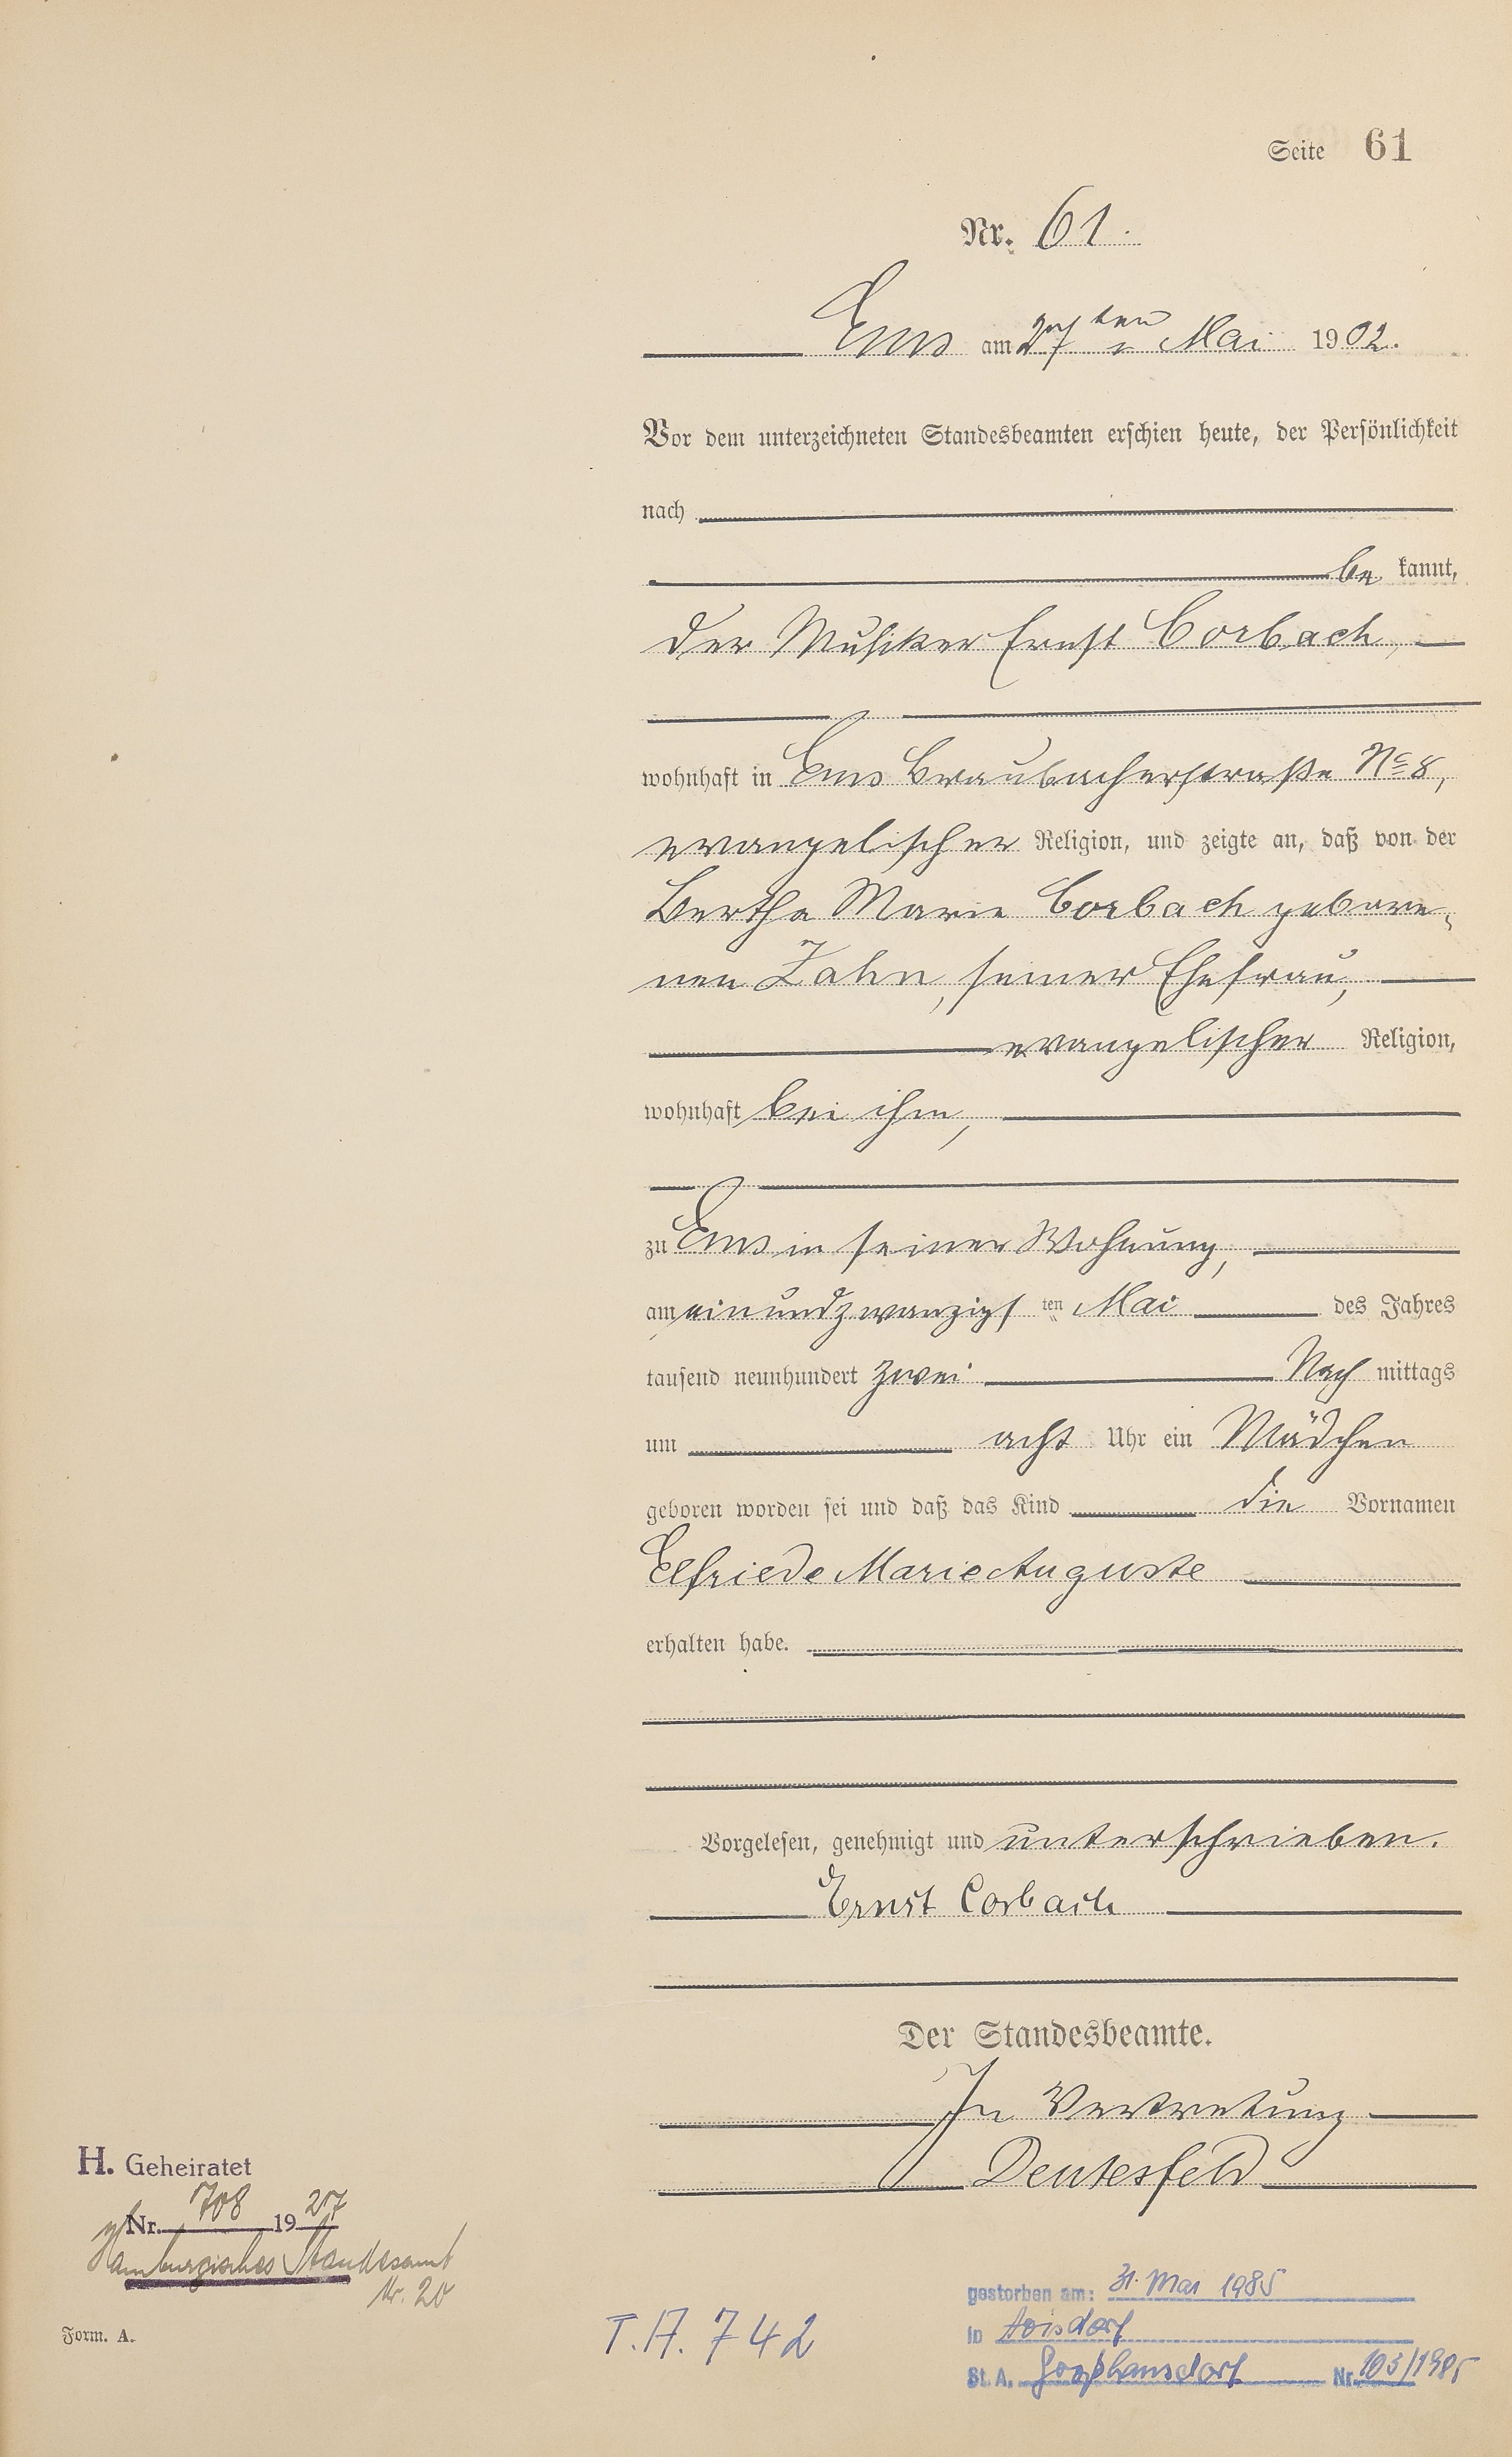 Seite 61
Nr. 61.
Ems am 27ten Mai 1902.
Vor dem unterzeichneten Standesbeamten erschien heute, der Persönlichkeit
nach
be kannt,
der Musiker Ernst Corbach,
wohnhaft in Ems Braubacherstraße No 8,
evangelischer Religion, und zeigte an, daß von der
Bertha Marie Corbach gebore-
nen Zahn, seiner Ehefrau,
evangelischer Religion,
wohnhaft bei ihm,
zu Ems in seiner Wohnung,
am einundzwanzigsten Mai des Jahres
tausend neunhundert zwei Nach mittags
um acht Uhr ein Mädchen
geboren worden sei und daß das Kind die Vornamen
Elfriede Marie Auguste
erhalten habe.
Vorgelesen, genehmigt und unterschrieben.
Ernst Corbach
Der Standesbeamte.
In Vertretung
Deutesfeld
H. Geheiratet
Nr. 708 1927
Hamburgisches Standesamt
Nr. 20
Form. A.
T. A. 742
gestorben am: 31. Mai 1985
in
St. A. Nr. 103/1985